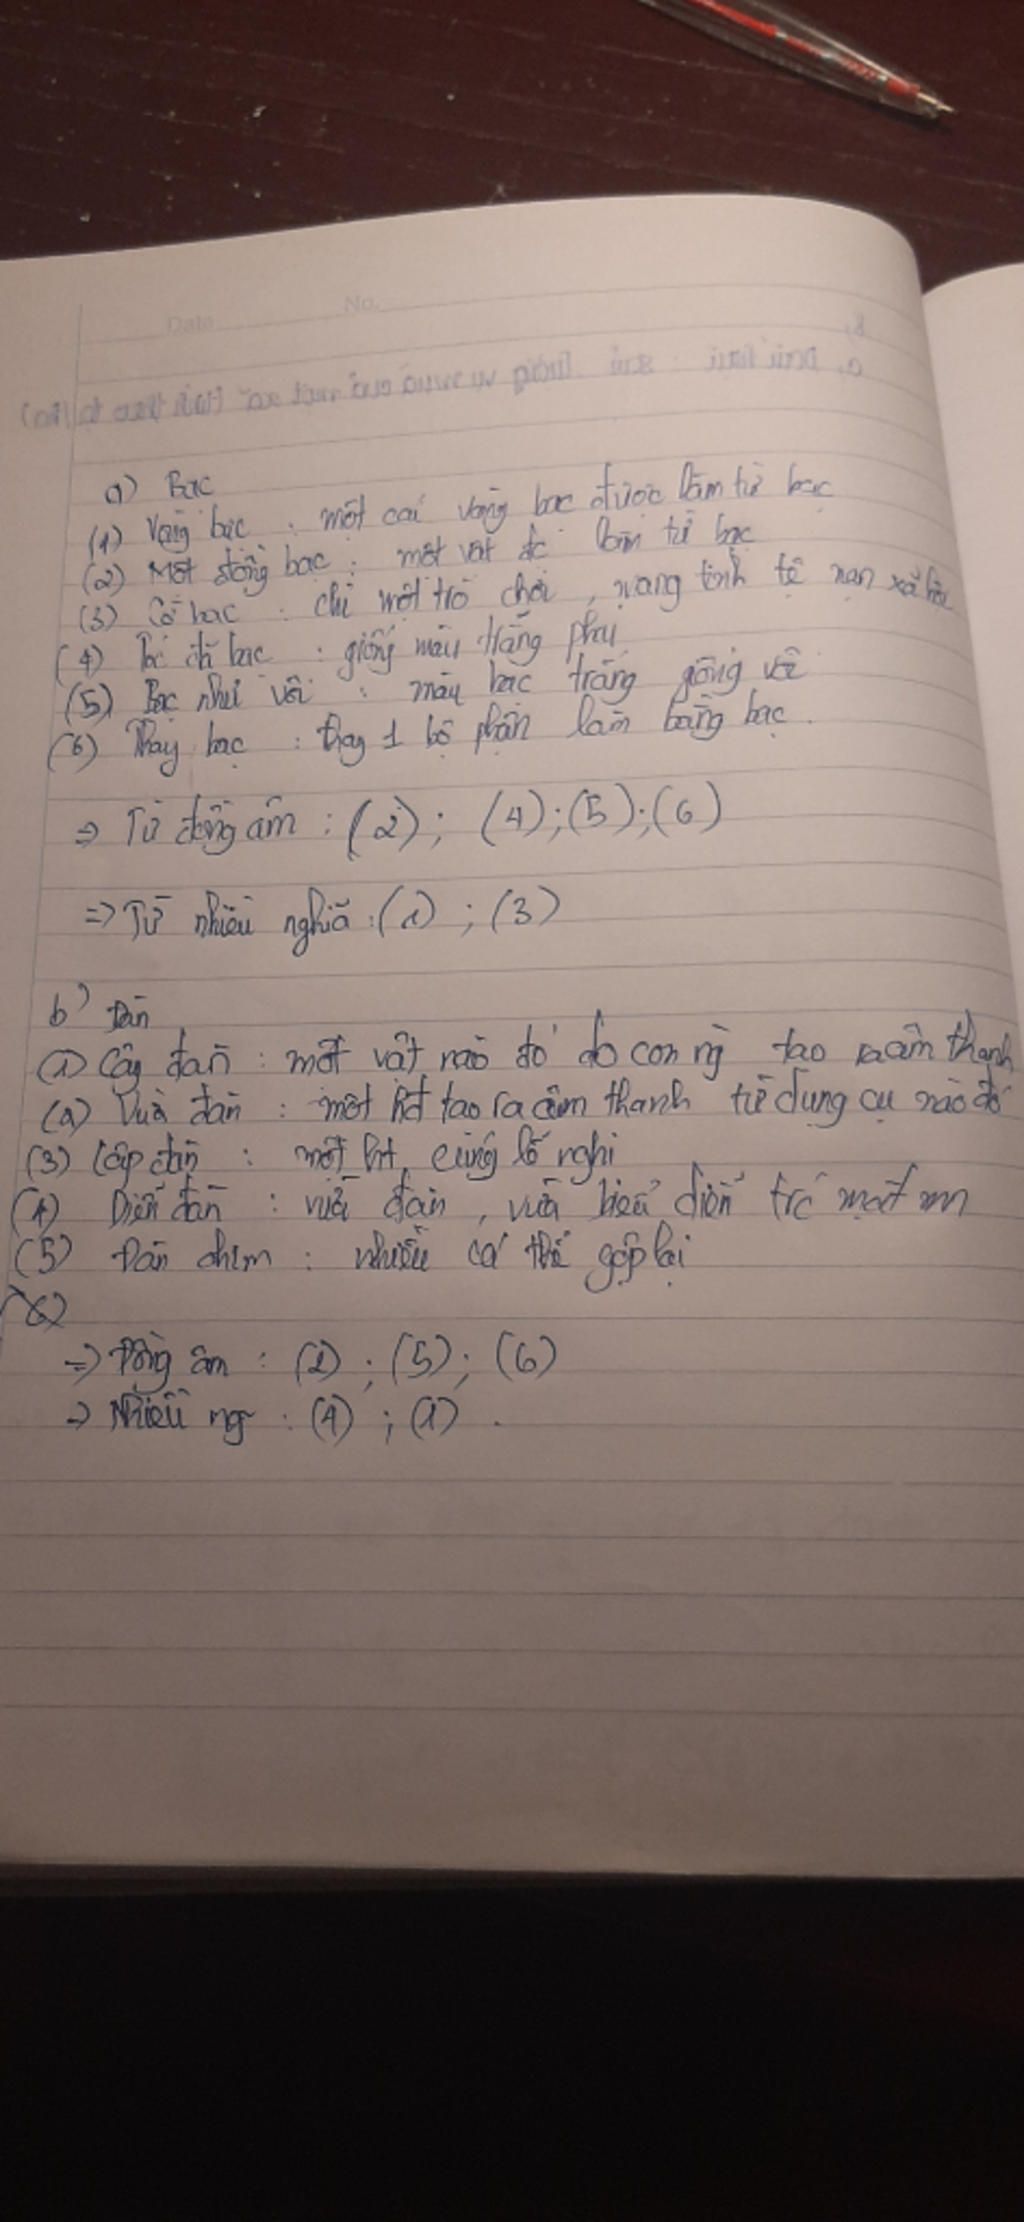 Date No.
a) Bạc
(1) Vòng bạc : một cái vòng bạc được làm từ bạc
(2) Một đồng bạc : một vật đc làm từ bạc
(3) Cờ bạc : chỉ một trò chơi, mang tính tệ nạn xã hội
(4) đã bạc : giống màu trắng phai
(5) Bạc như vôi : màu bạc trắng giống vôi
(6) Thay bạc : thay 1 bộ phận làm bằng bạc.
=> Từ đồng âm : (2); (4); (5); (6)
=> Từ nhiều nghĩa : (1) ; (3)
b) Đàn
(1) Cây đàn : một vật nào đó do con ng tạo ra âm thanh
(2) Vừa đàn : một tạo ra âm thanh từ dụng cụ nào đó
(3) Lập đàn : một
(4) Diễn đàn : vừa đàn, vừa biểu diễn trc mặt mn
(5) Đàn chim : nhiều cá thể gộp lại
(6)
=> Đồng âm : (2) ; (5); (6)
=> Nhiều ng~ : (4) ; (1).